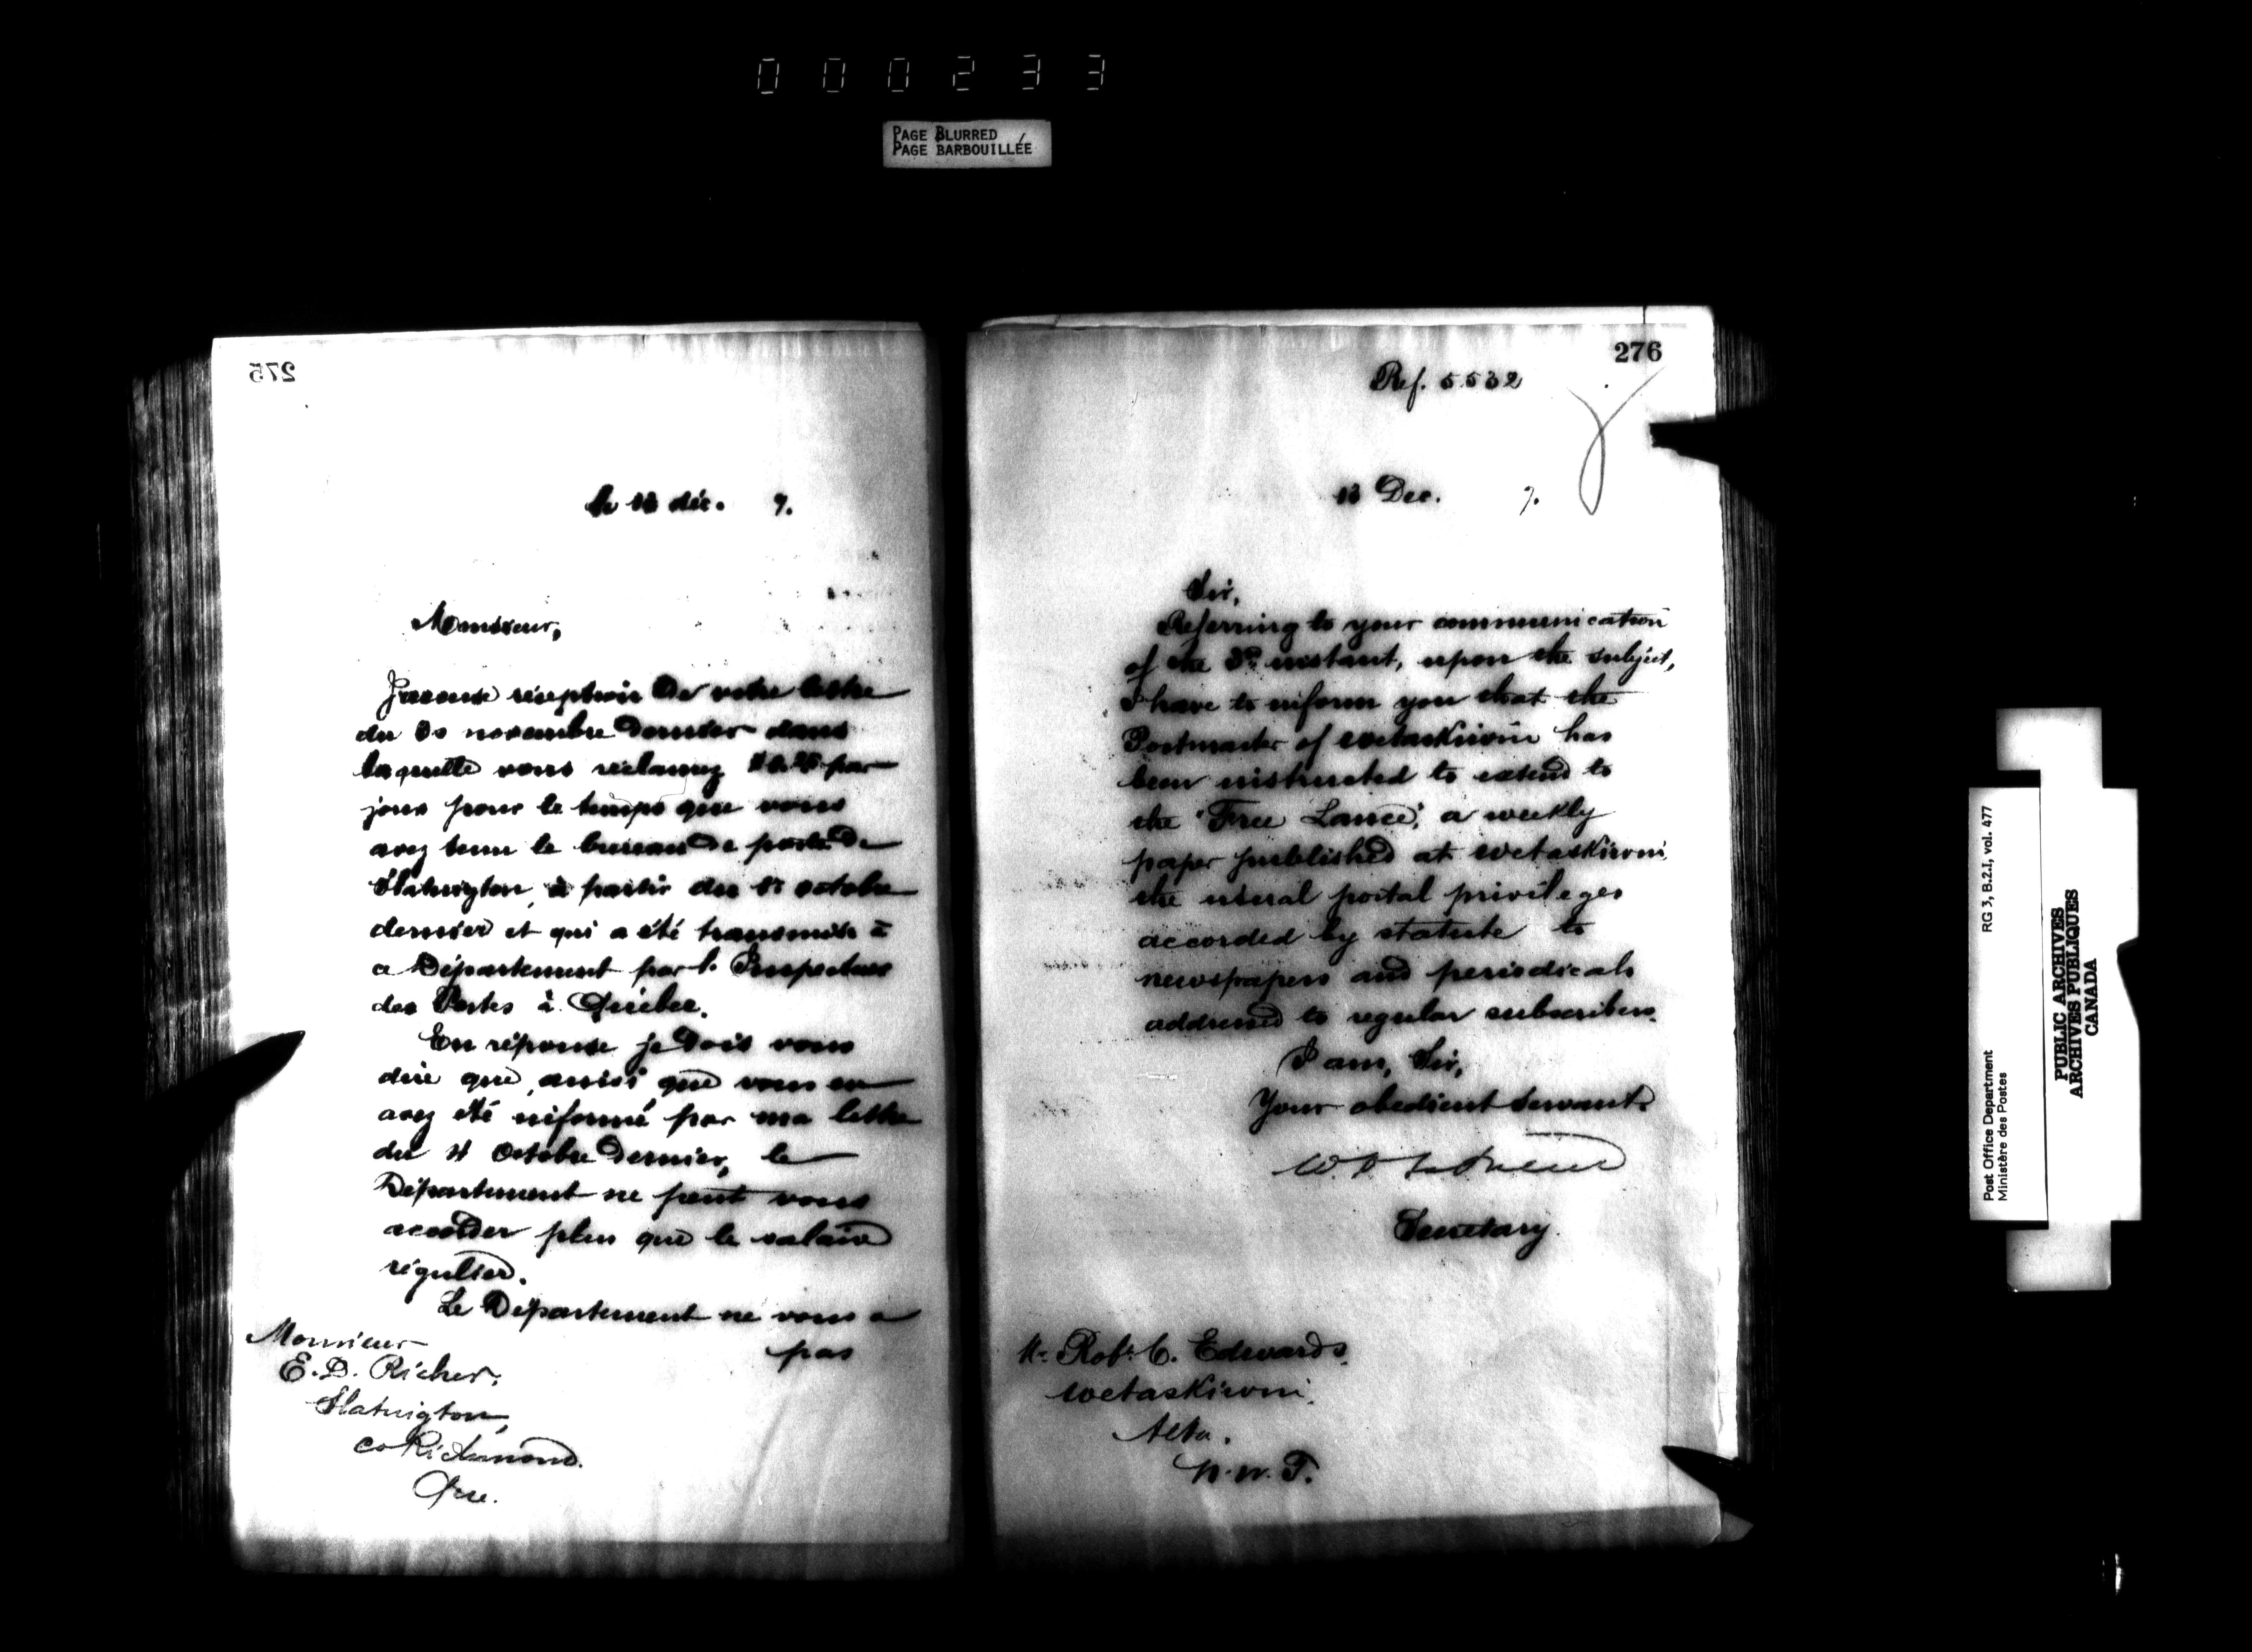 000233
PAGE BLURRED
PAGE BARBOUILLÉE
275
le 13 déc. 7.
Monsieur,
J'accuse réception de votre lettre
du 30 novembre dernier dans
laquelle vous réclamez par
jour pour le temps que vous
avez tenu le bureau de poste de
Slatington, à partir du 1er octobre
dernier et qui a été transmise à
ce Département par l'Inspecteur
des Postes à Québec.
En réponse je dois vous
dire que, ainsi que vous en
avez été informé par ma lettre
du octobre dernier, le
Département ne peut vous
accorder plus que le salaire
régulier.
Le Département ne vous a
pas
Monsieur
E. D. Richer,
Slatington,
Co Richmond.
Que.
276
Ref. 5532
13 Dec. 7.
Sir,
Referring to your communication
of the 3rd instant, upon the subject,
I have to inform you that the
Postmaster of Wetaskiwin has
been instructed to extend to
the "Free Lance", a weekly
paper published at Wetaskiwin
the usual postal privileges
accorded by statute to
newspapers and periodicals
addressed to regular subscribers.
I am, Sir,
Your obedient Servant.
Secretary.
Mr Robt C. Edwards.
Wetaskiwin.
Alta.
N.W.T.
Post Office Department
Ministère des Postes
RG 3, B.2.I, vol. 477
PUBLIC ARCHIVES
ARCHIVES PUBLIQUES
CANADA